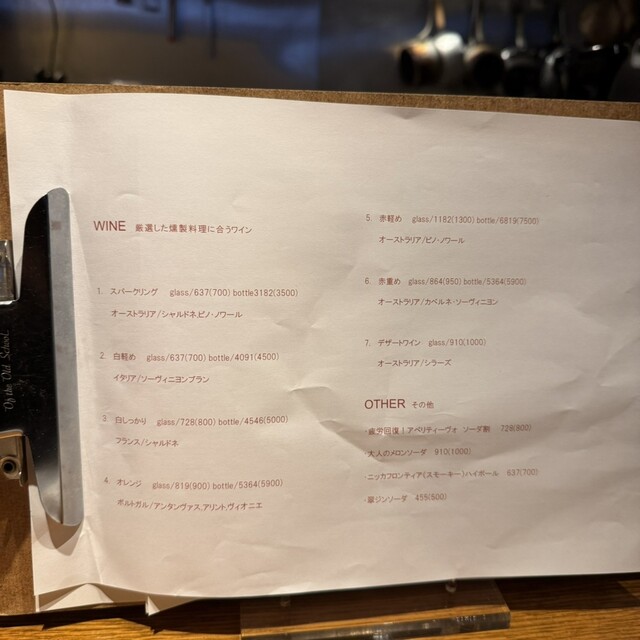 WINE 厳選した燻製料理に合うワイン
1. スパークリング glass/637(700) bottle3182(3500)
オーストラリア/シャルドネ.ピノ・ノワール
2. 白軽め glass/637(700) bottle/4091(4500)
イタリア/ソーヴィニヨンブラン
3. 白しっかり glass/728(800) bottle/4546(5000)
フランス/シャルドネ
4. オレンジ glass/819(900) bottle/5364(5900)
ポルトガル/アンタンヴァス,アリント,ヴィオニエ
5. 赤軽め glass/1182(1300) bottle/6819(7500)
オーストラリア/ピノ・ノワール
6. 赤重め glass/864(950) bottle/5364(5900)
オーストラリア/カベルネ・ソーヴィニヨン
7. デザートワイン glass/910(1000)
オーストラリア/シラーズ
OTHER その他
・疲労回復!アペリティーヴォ ソーダ割 728(800)
・大人のメロンソーダ 910(1000)
・ニッカフロンティア(スモーキー)ハイボール 637(700)
・翠ジンソーダ 455(500)
Of the Old School